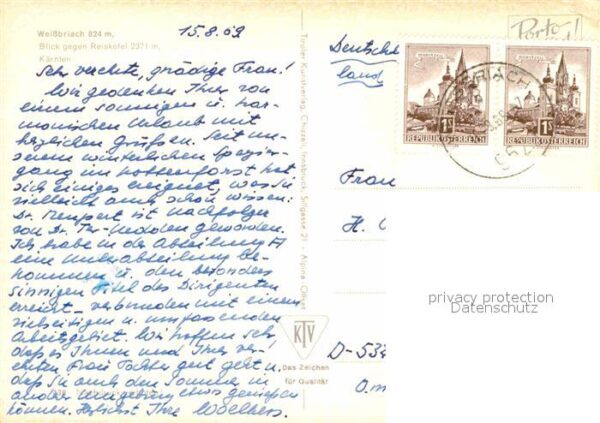 Weißbriach 824 m,
Blick gegen Reiskofel 2371 m,
Kärnten
15.8.69
Sehr verehrte, gnädige Frau!
Wir gedenken Ihrer von
einem sonnigen u. har-
monischen Urlaub mit
herzlichen Grüßen. Seit un-
serem winterlichen Spazier-
gang im Kottenforst hat
sich einiges ereignet, was Sie
vielleicht auch schon wissen:
Dr. Neupert ist Nachfolger
von Dr. geworden.
Ich habe in der Abteilung A
eine Unterabteilung be-
kommen u. den besonders
sinnigen Titel des Dirigenten
erreicht – verbunden mit einem
vielseitigen u. umfassenden
Arbeitsgebiet. Wir hoffen sehr
daß es Ihnen und Ihrer ver-
ehrten Frau Tochter gut geht u.
daß Sie auch den Sommer in
anderer Umgebung etwas genießen
können. Herzlichst Ihre
Tiroler Kunstverlag, Chizzali, Innsbruck, Sillgasse 21 - Alpina Offset
KTV
Das Zeichen
für Qualität
Porto!
Deutsch-
land
MARIAZELL
MARIAZELL
1S
1S
REPUBLIK ÖSTERREICH
REPUBLIK ÖSTERREICH
Frau
H.
D-534
privacy protection
Datenschutz